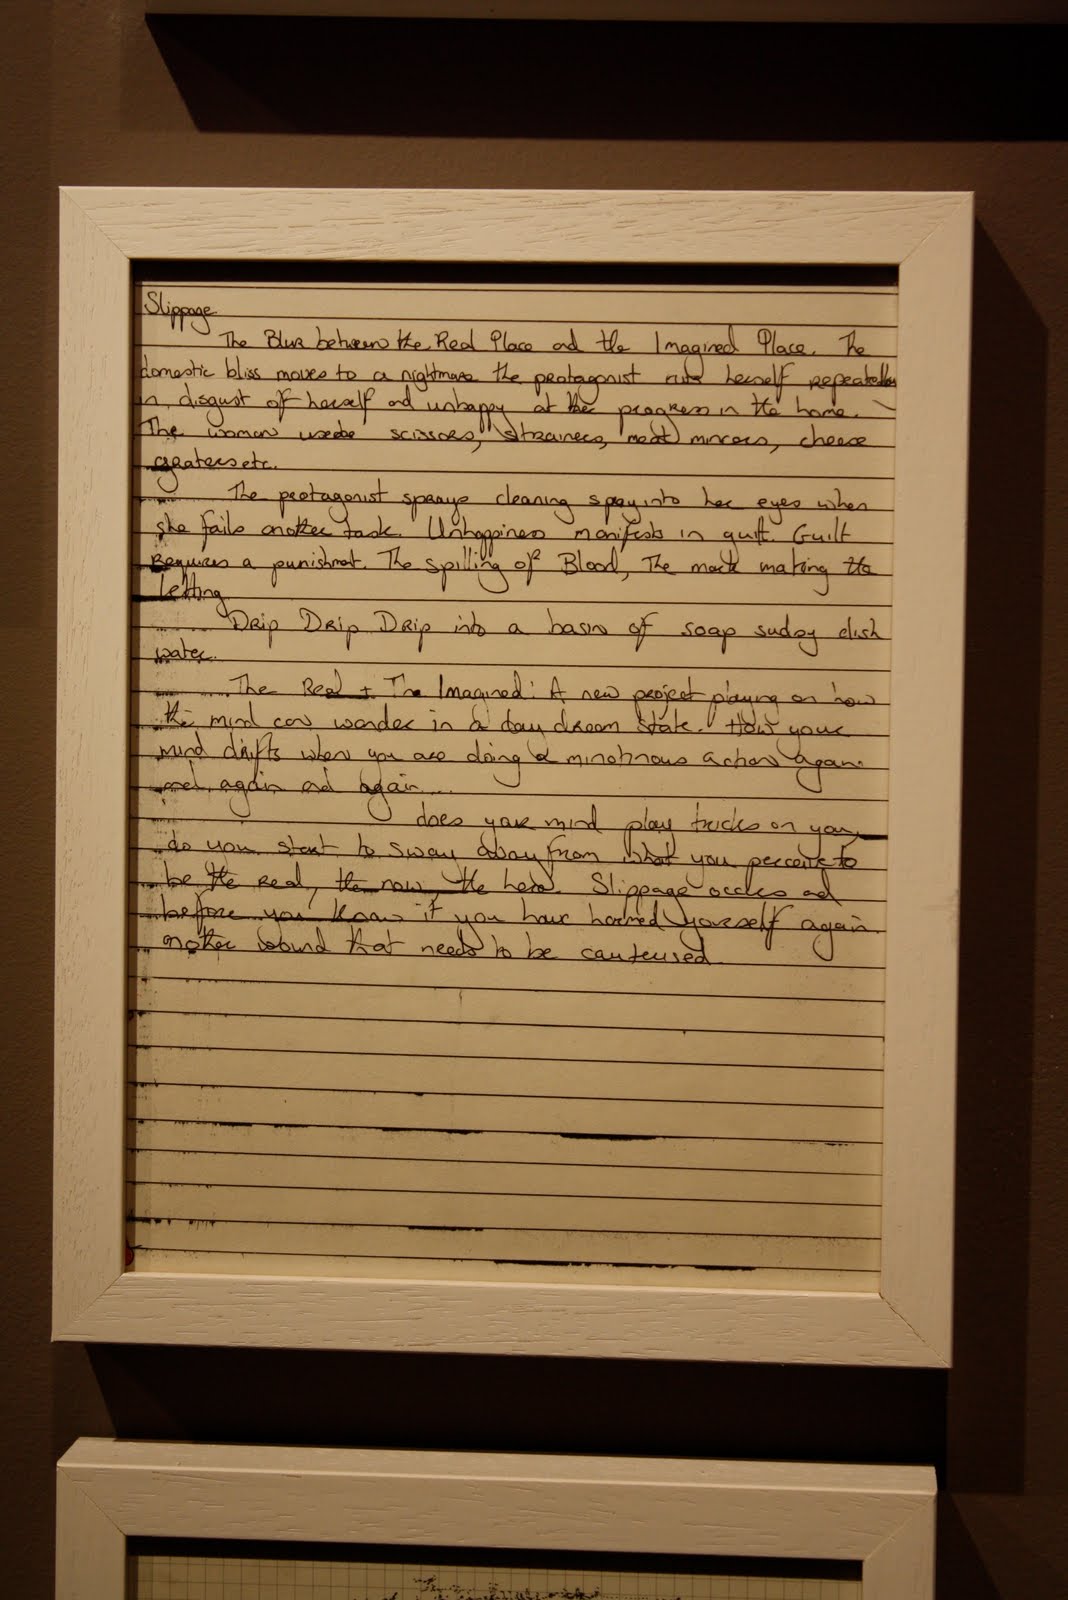 Slippage
The Blur between the Real Place and the Imagined Place. The
domestic bliss moves to a nightmare the protagonist cuts herself repeatedley
in disgust of herself and unhappy at the progress in the home.
The woman scissors, strainers, meat mincers, cheese
greaters etc.
The protagonist sprays cleaning spray into her eyes when
she fails another task. Unhappiness manifests in guilt. Guilt
Requires a punishment. The spilling of Blood, The mark making the
letting
Drip Drip Drip into a basin of soap sudsy dish
water.
The Real + The Imagined: A new project playing on how
the mind can wonder in a day dream state. How your
mind drifts when you are doing a minotinous action again
and again and again...
does your mind play tricks on you,
do you start to sway away from what you perceive to
be the real, the now, the here. Slippage occurs and
before you know it you have harmed yourself again
another wound that needs to be cauterised